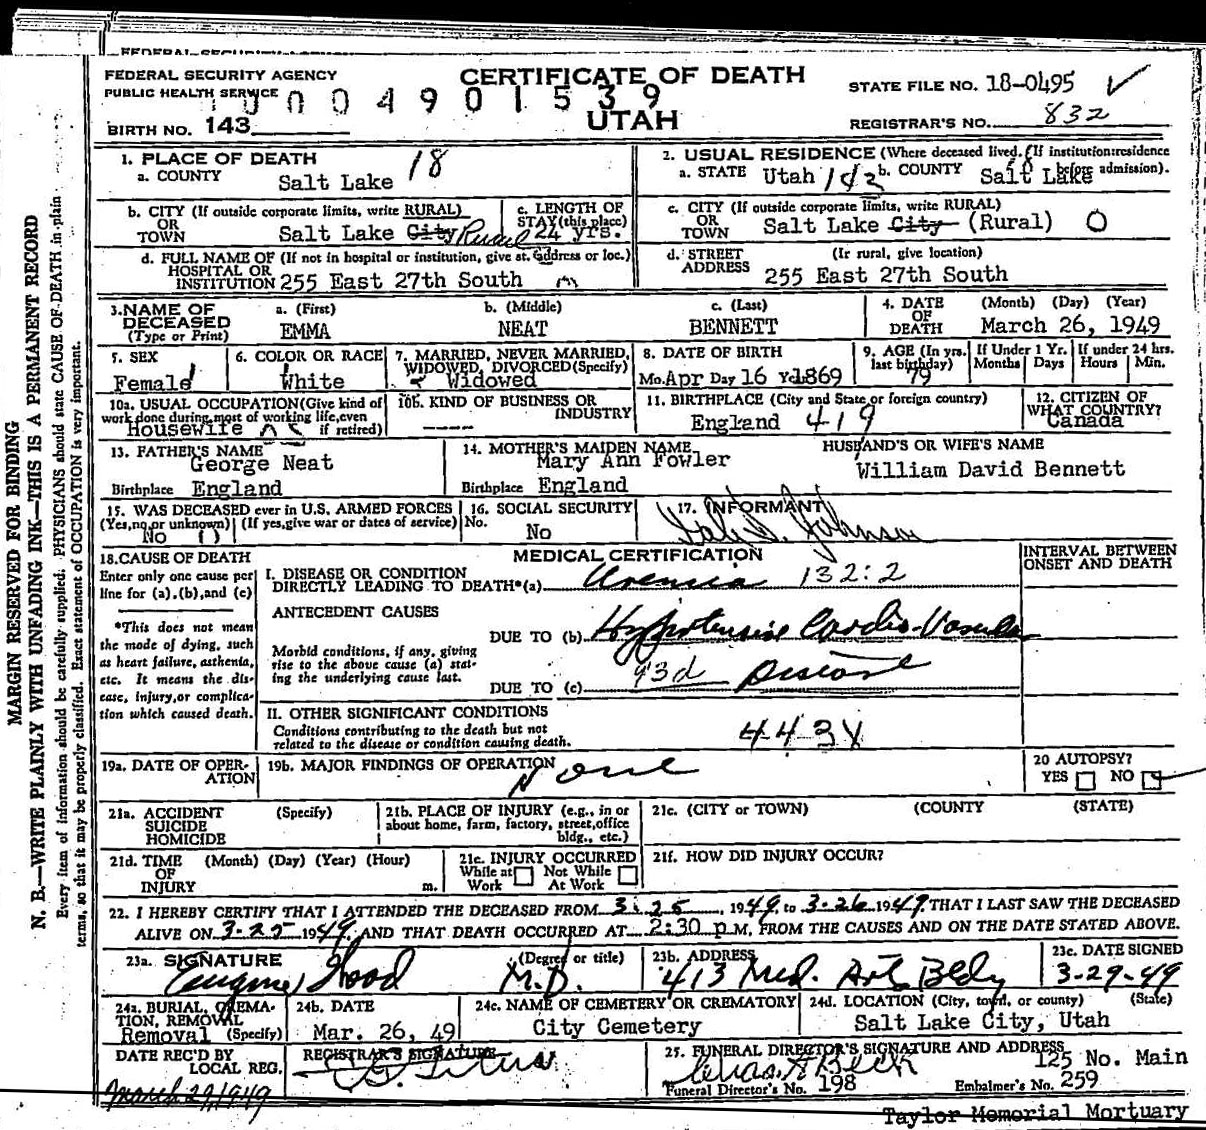 FEDERAL SECURITY AGENCY
PUBLIC HEALTH SERVICE
CERTIFICATE OF DEATH
UTAH
STATE FILE NO. 18-0495 ✓
0004901539
BIRTH NO. 143
REGISTRAR'S NO. 832
1. PLACE OF DEATH
a. COUNTY Salt Lake 18
2. USUAL RESIDENCE (Where deceased lived. If institution: residence before admission).
a. STATE Utah 143 b. COUNTY Salt Lake
b. CITY (If outside corporate limits, write RURAL)
OR
TOWN Salt Lake City Rural
c. LENGTH OF
STAY (this place)
24 yrs.
c. CITY (If outside corporate limits, write RURAL)
OR
TOWN Salt Lake City (Rural) 0
d. FULL NAME OF (If not in hospital or institution, give st. address or loc.)
HOSPITAL OR
INSTITUTION 255 East 27th South
d. STREET (Ir rural, give location)
ADDRESS 255 East 27th South
3. NAME OF DECEASED (Type or Print)
a. (First) EMMA
b. (Middle) NEAT
c. (Last) BENNETT
4. DATE OF DEATH (Month) (Day) (Year)
March 26, 1949
5. SEX
Female
6. COLOR OR RACE
White
7. MARRIED, NEVER MARRIED, WIDOWED, DIVORCED (Specify)
Widowed
8. DATE OF BIRTH
Mo. Apr Day 16 Yr. 1869
9. AGE (In yrs. last birthday) 79
If Under 1 Yr. Months Days
If under 24 hrs. Hours Min.
10a. USUAL OCCUPATION (Give kind of work done during most of working life, even if retired)
Housewife
10b. KIND OF BUSINESS OR INDUSTRY
----
11. BIRTHPLACE (City and State or foreign country)
England 419
12. CITIZEN OF WHAT COUNTRY?
Canada
13. FATHER'S NAME
George Neat
Birthplace England
14. MOTHER'S MAIDEN NAME
Mary Ann Fowler
Birthplace England
HUSBAND'S OR WIFE'S NAME
William David Bennett
15. WAS DECEASED ever in U.S. ARMED FORCES
(Yes, no, or unknown) (If yes, give war or dates of service)
No
16. SOCIAL SECURITY No.
No
17. INFORMANT
Johnson
18. CAUSE OF DEATH
Enter only one cause per line for (a), (b), and (c)
*This does not mean the mode of dying, such as heart failure, asthenia, etc. It means the disease, injury, or complication which caused death.
MEDICAL CERTIFICATION
INTERVAL BETWEEN ONSET AND DEATH
I. DISEASE OR CONDITION
DIRECTLY LEADING TO DEATH* (a) Uremia 132:2
ANTECEDENT CAUSES
DUE TO (b) Hypertensive Cardio-Vascular
Morbid conditions, if any, giving rise to the above cause (a) stating the underlying cause last.
DUE TO (c) 93d Disease
II. OTHER SIGNIFICANT CONDITIONS
Conditions contributing to the death but not related to the disease or condition causing death.
443X
19a. DATE OF OPERATION
19b. MAJOR FINDINGS OF OPERATION
None
20 AUTOPSY?
YES NO
21a. ACCIDENT SUICIDE HOMICIDE (Specify)
21b. PLACE OF INJURY (e.g., in or about home, farm, factory, street, office bldg., etc.)
21c. (CITY or TOWN) (COUNTY) (STATE)
21d. TIME OF INJURY (Month) (Day) (Year) (Hour) m.
21e. INJURY OCCURRED
While at Work Not While At Work
21f. HOW DID INJURY OCCUR?
22. I HEREBY CERTIFY THAT I ATTENDED THE DECEASED FROM 3-25, 1949, to 3-26 1949, THAT I LAST SAW THE DECEASED
ALIVE ON 3-25 1949, AND THAT DEATH OCCURRED AT 2:30 p M, FROM THE CAUSES AND ON THE DATE STATED ABOVE.
23a. SIGNATURE (Degree or title)
Eugene Wood M.D.
23b. ADDRESS
413 Med. Arts Bldg
23c. DATE SIGNED
3-29-49
24a. BURIAL, CREMATION, REMOVAL (Specify)
Removal
24b. DATE
Mar. 26, 49
24c. NAME OF CEMETERY OR CREMATORY
City Cemetery
24d. LOCATION (City, town, or county) (State)
Salt Lake City, Utah
DATE REC'D BY LOCAL REG.
March 29, 1949
REGISTRAR'S SIGNATURE
25. FUNERAL DIRECTOR'S SIGNATURE AND ADDRESS
125 No. Main
Funeral Director's No. 198 Embalmer's No. 259
Taylor Memorial Mortuary
MARGIN RESERVED FOR BINDING
N. B.—WRITE PLAINLY WITH UNFADING INK—THIS IS A PERMANENT RECORD
Every item of information should be carefully supplied. PHYSICIANS should state CAUSE OF DEATH in plain
terms, so that it may be properly classified. Exact statement of OCCUPATION is very important.